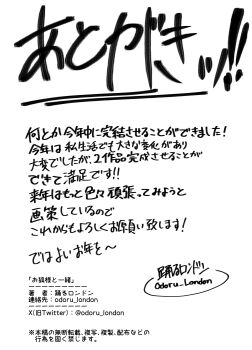 あとがきッ!!
何とか今年中に完結させることができました!
今年は私生活でも大きな変化があり
大変でしたが、2作品完成させることが
できて満足です!!
来年はもっと色々頑張ってみようと
画策しているので
これからもよろしくお願い致します!
ではよいお年を〜
踊るロンドン
Odoru_London
「お狐様と一緒」
ーーーーーーーー
著 者:踊るロンドン
連絡先:odoru_london
ーーーーーーーー
X(旧Twitter):@odoru_london
※本稿の無断転載、複写、複製、配布などの
行為を固く禁じます。